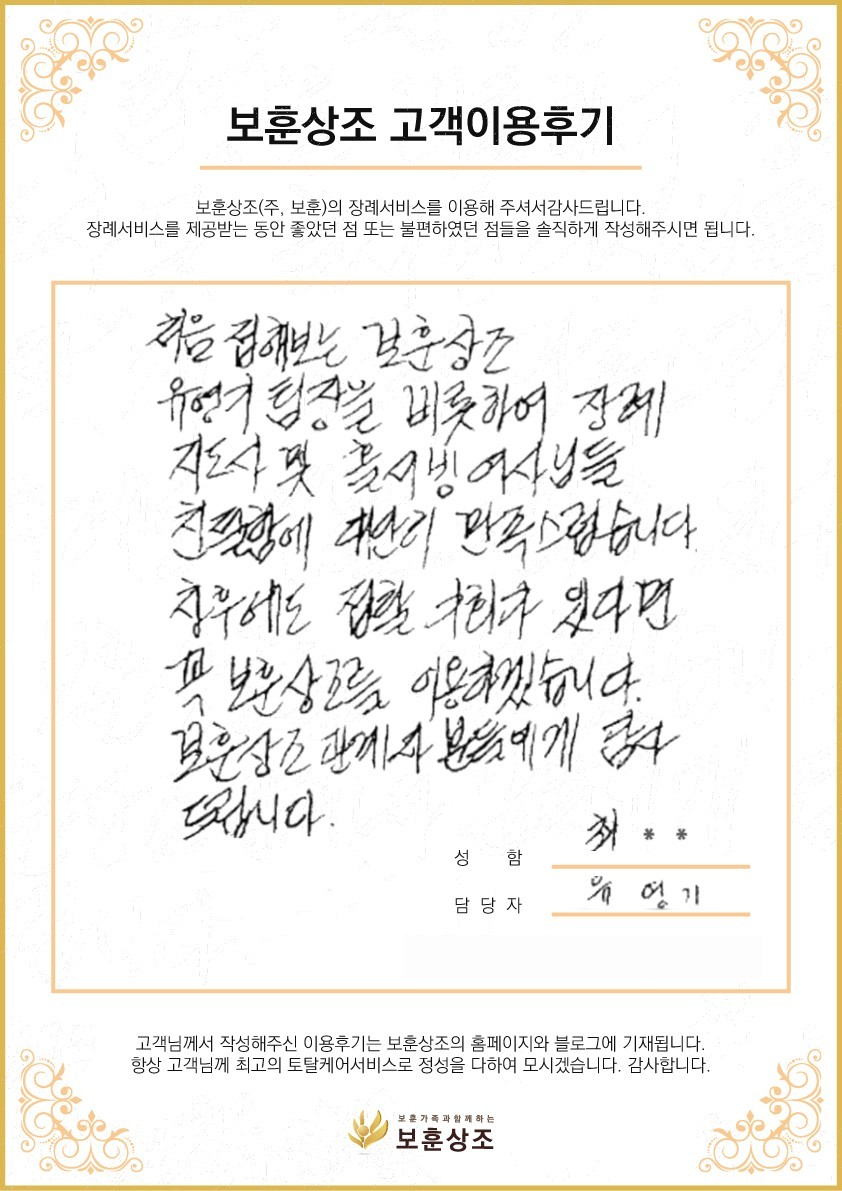 보훈상조 고객이용후기
보훈상조(주, 보훈)의 장례서비스를 이용해 주셔서감사드립니다.
장례서비스를 제공받는 동안 좋았던 점 또는 불편하였던 점들을 솔직하게 작성해주시면 됩니다.
처음 접해보는 보훈상조
유영기 팀장을 비롯하여 장례
지도사 및 홀서빙 여사님들
친절함에 대단히 만족스럽습니다
향후에도 접할 기회가 있다면
꼭 보훈상조를 이용하겠습니다.
보훈상조 관계자 분들에게 감사
드립니다.
성 함 최 * *
담 당 자 유 영 기
고객님께서 작성해주신 이용후기는 보훈상조의 홈페이지와 블로그에 기재됩니다.
항상 고객님께 최고의 토탈케어서비스로 정성을 다하여 모시겠습니다. 감사합니다.
보훈가족과함께하는
보훈상조